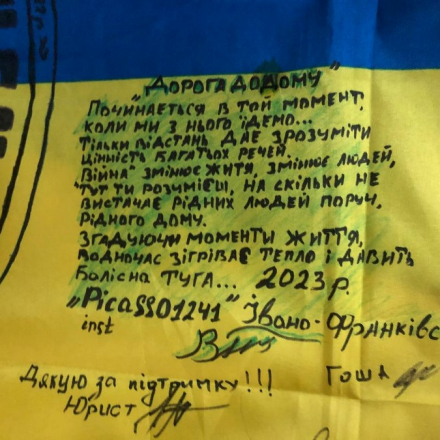 "Дорога додому"
Починається в той момент,
коли ми з нього їдемо...
Тільки відстань дає зрозуміти
цінність багатьох речей.
Війна змінює життя, змінює людей,
Тут ти розумієш, на скільки не
вистачає рідних людей поруч,
рідного дому.
Згадуючи моменти життя,
водночас зігріває тепло і давить
болісна туга... 2023 р.
„Picasso1241" Івано-Франківс
inst
Дякую за підтримку!!! Гоша
Юрист